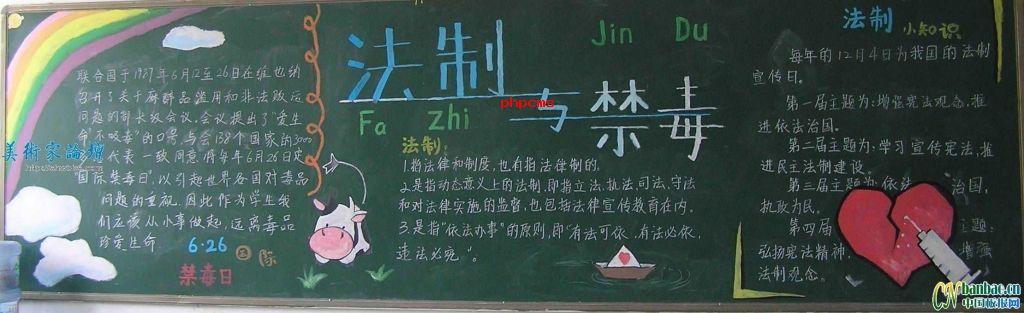 联合国于1987年6月12至26日在维也纳
召开了关于麻醉品滥用和非法贩运
问题的部长级会议,会议提出了“爱生
命不吸毒”的口号,与会138个国家的3000
代表一致同意将每年6月26日定
国际禁毒日”,以引起世界各国对毒品
问题的重视,因此作为学生我
们应该从小事做起,远离毒品
珍爱生命
6·26 国际
禁毒日
美術家論壇
法制
phpcms
与禁毒
Fa zhi
Jin Du
法制:
1.指法律和制度,也有指法律制的。
2.是指动态意义上的法制,即指立法、执法、司法、守法
和对法律实施的监督,也包括法律宣传教育在内。
3.是指“依法办事”的原则,即“有法可依,有法必依,
违法必究”。
法制 小知识
每年的12月4日为我国的法制
宣传日。
第一届主题为:增强宪法观念,推
进依法治国。
第二届主题为:学习宣传宪法,推
进民主法制建设。
第三届主题为:依法 治国,
执政为民。
第四届 主题:
弘扬宪法精神, 增强
法制观念。
CNbanbao.cn
中国板报网